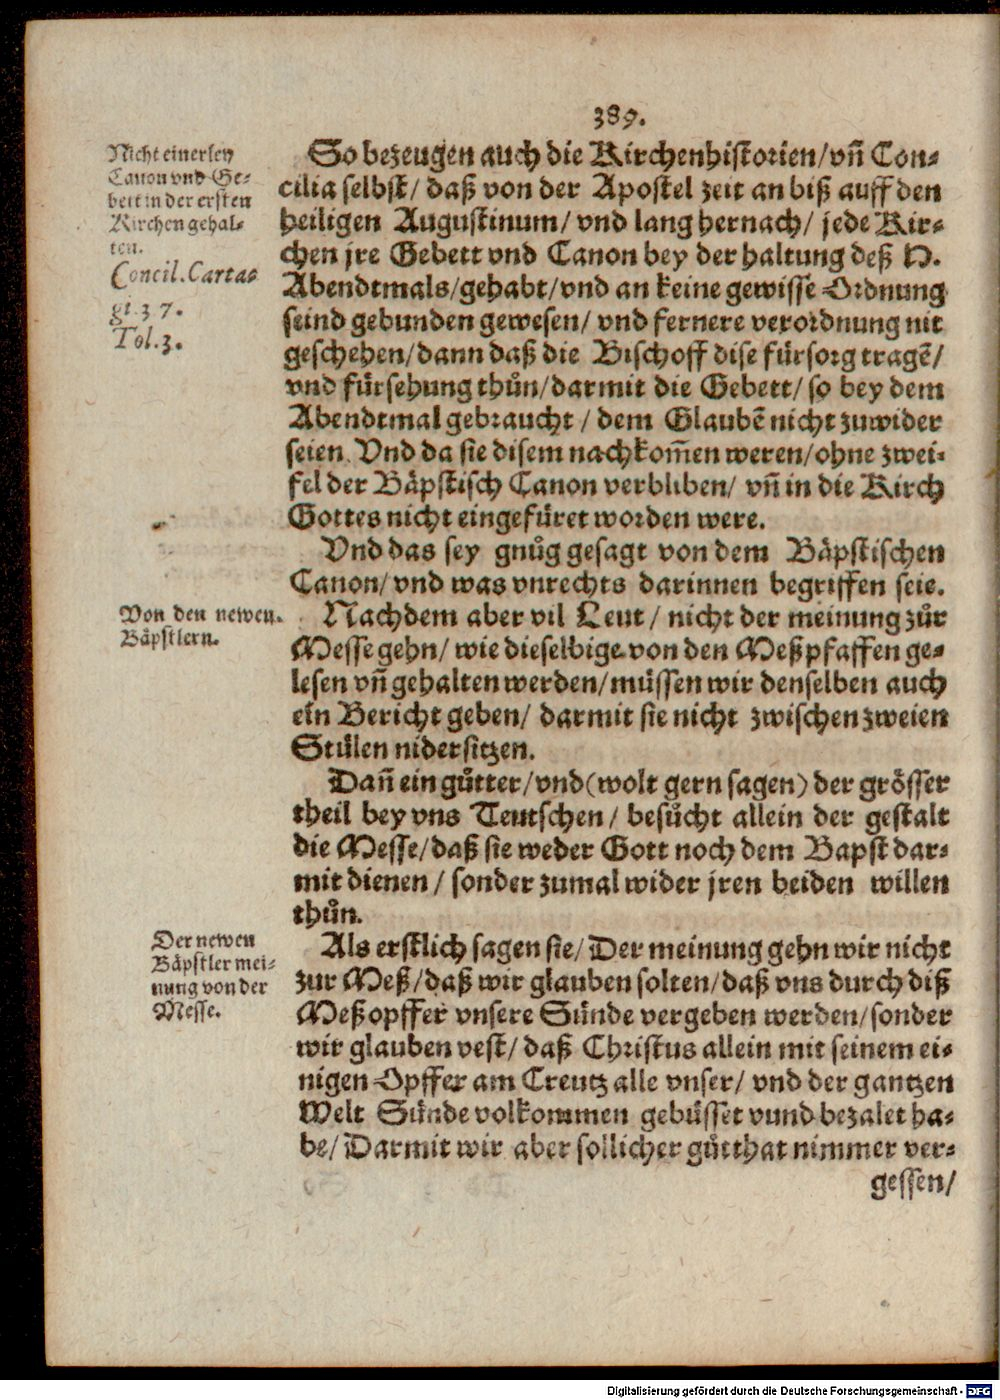 389.
Nicht einerley
Canon vnd Ge-
bett in der ersten
Kirchen gehal-
ten.
Concil. Carta-
gi. 37.
Tol. 3.
So bezeugen auch die Kirchenhistorien/ vñ Con-
cilia selbst/ daß von der Apostel zeit an biß auff den
heiligen Augustinum/ vnd lang hernach/ jede Kir-
chen jre Gebett vnd Canon bey der haltung deß H.
Abendtmals/ gehabt/ vnd an keine gewisse Ordnung
seind gebunden gewesen/ vnd fernere verordnung nit
geschehen/ dann daß die Bischoff dise fürsorg tragẽ/
vnd fürsehung thůn/ darmit die Gebett/ so bey dem
Abendtmal gebraucht/ dem Glaubẽ nicht zuwider
seien. Vnd da sie disem nachkom̃en weren/ ohne zwei-
fel der Bäpstisch Canon verbliben/ vñ in die Kirch
Gottes nicht eingefüret worden were.
Vnd das sey gnůg gesagt von dem Bäpstischen
Canon/ vnd was vnrechts darinnen begriffen seie.
Von den newen
Bäpstlern.
Nachdem aber vil Leut/ nicht der meinung zůr
Messe gehn/ wie dieselbige von den Meßpfaffen ge-
lesen vñ gehalten werden/ müssen wir denselben auch
ein Bericht geben/ darmit sie nicht zwischen zweien
Stülen nidersitzen.
Dañ ein gůtter/ vnd (wolt gern sagen) der grösser
theil bey vns Teutschen/ besůcht allein der gestalt
die Messe/ daß sie weder Gott noch dem Bapst dar-
mit dienen/ sonder zumal wider jren beiden willen
thůn.
Der newen
Bäpstler mei-
nung von der
Messe.
Als erstlich sagen sie/ Der meinung gehn wir nicht
zur Meß/ daß wir glauben solten/ daß vns durch diß
Meßopffer vnsere Sünde vergeben werden/ sonder
wir glauben vest/ daß Christus allein mit seinem ei-
nigen Opffer am Creutz alle vnser/ vnd der gantzen
Welt Sünde volkommen gebüsset vund bezalet ha-
be/ Darmit wir aber sollicher gůtthat nimmer ver-
gessen/
Digitalisierung gefördert durch die Deutsche Forschungsgemeinschaft - DFG